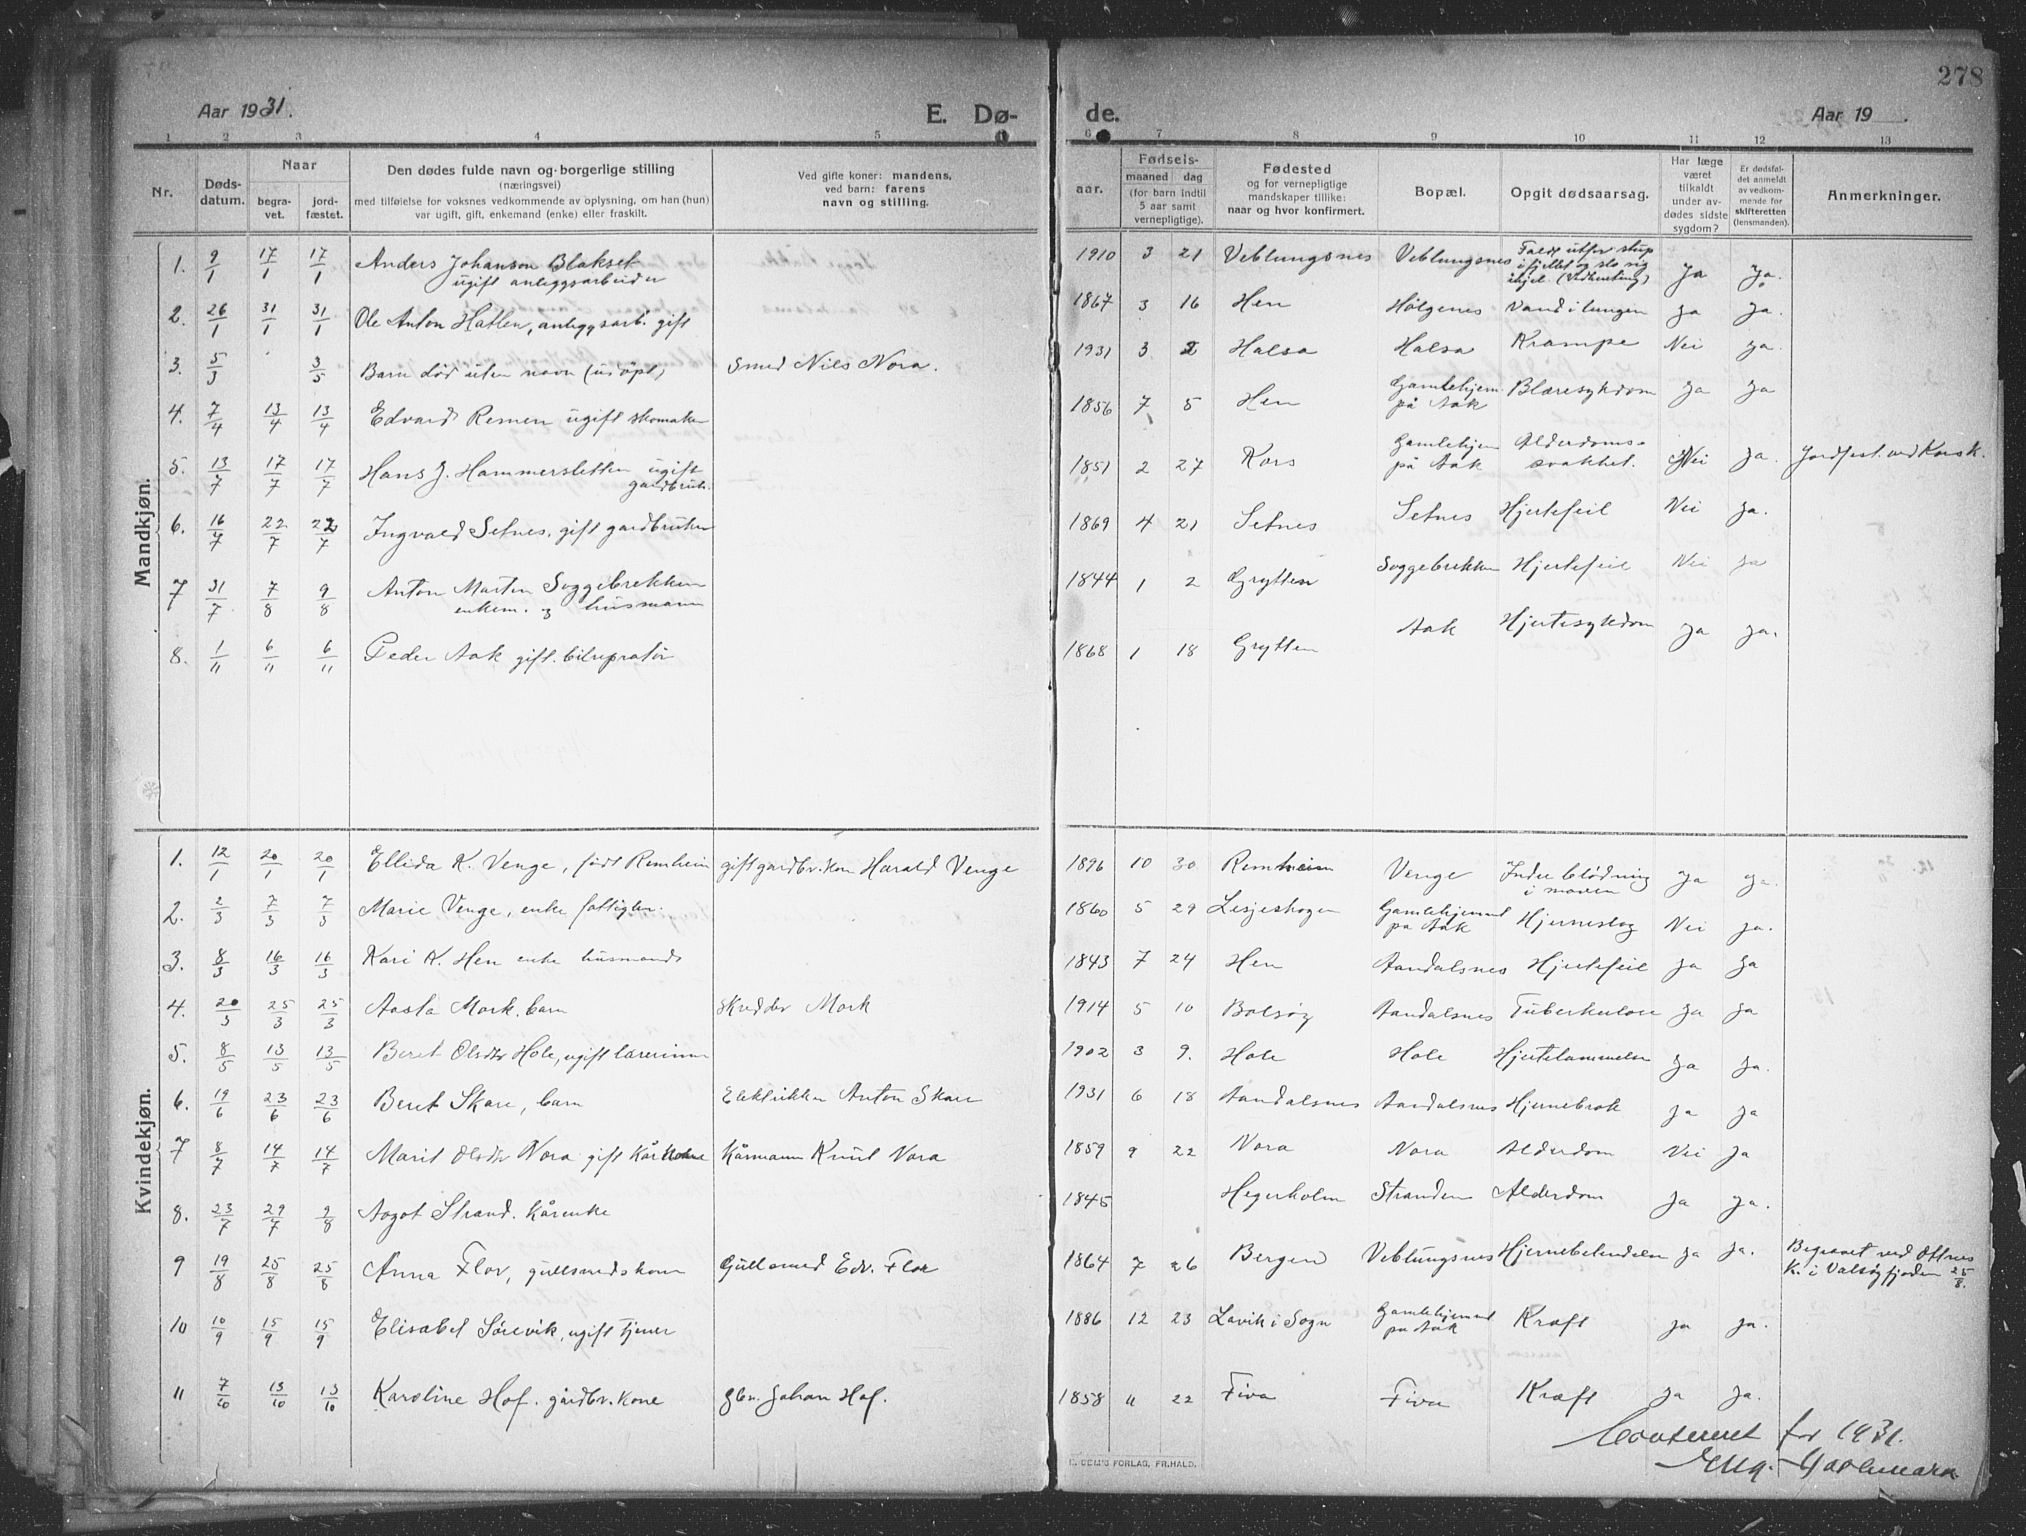 278
Aar 1931. E. Dø- de. Aar 19
1 2 3 4 5 6 7 8 9 10 11 12 13
Nr. Døds-datum. Naar begra-vet. jord-fæstet. Den dødes fulde navn og borgerlige stilling (næringsvei) med tilføielse for voksnes vedkommende av oplysning, om han (hun) var ugift, gift, enkemand (enke) eller fraskilt. Ved gifte koner: mandens, ved barn: farens navn og stilling. aar. Fødsels- maaned dag (for barn indtil 5 aar samt vernepligtige). Fødested og for vernepligtige mandskaper tillike: naar og hvor konfirmert. Bopæl. Opgit dødsaarsag. Har læge været tilkaldt under av-dødes sidste sygdom? Er dødsfal-det anmeldt av vedkom-mende for skifteretten (lensmanden). Anmerkninger.
Mandkjøn.
1. 9/1 17/1 17/1 Anders Johanson Blakset ugift anleggsarbeider 1910 3 21 Veblungsnes Veblungsnes Faldt utfor stup i fjellet og slo sig ihjel (Vedhenting) Ja Ja.
2. 26/1 31/1 31/1 Ole Anton Hatlen, anleggsarb. gift 1867 3 16 Hen Hølgenes Vand i lungen Ja Ja.
3. 5/3 3/5 Barn død uten navn (udøpt) Smed Nils Nora. 1931 3 2 Halsa Halsa Krampe Nei Ja.
4. 7/4 13/4 13/4 Edvard Remen ugift skomaker 1856 7 5 Hen Gamlehjem på Aak Blæresykdom Ja Ja
5. 13/7 17/7 17/7 Hans J. Hammersletten ugift gardbruk. 1851 2 27 Kors Gamlehjem på Aak Alderdoms-svakhet. Nei Ja. Jordfest. ved Kors k.
6. 16/7 22/7 22/7 Ingvald Setnes, gift gardbruker 1869 4 21 Setnes Setnes Hjertefeil Nei Ja.
7 31/7 7/8 9/8 Anton Marten Soggebrekken enkem. og husmann 1844 1 2 Grytten Soggebrekken Hjertefeil Nei Ja
8. 1/11 6/11 6/11 Peder Aak gift. bilrepratør 1868 1 18 Grytten Aak Hjertesykdom Ja Ja.
Kvindekjøn.
1. 12/1 20/1 20/1 Ellida K. Venge, født Remheim gift gardbr. kon Harald Venge 1896 10 30 Remheim Venge Indre blødning i maven Ja Ja.
2. 2/3 7/3 7/3 Marie Venge, enke fattiglem. 1860 5 29 Lesjeskogen Gamlehjemmet på Aak Hjerneslag Nei Ja.
3. 8/3 16/3 16/3 Kari K. Hen enke husmands 1843 7 24 Hen Aandalsnes Hjertefeil Ja Ja
4. 20/3 25/3 25/3 Aasta Mork. barn Skredder Mork 1914 5 10 Bolsøy Aandalsnes Tuberkulose Ja Ja
5. 8/5 13/5 13/5 Beret Olsdtr Hole, ugift lærerinne 1902 3 9. Hole Hole Hjertelammelse Ja Ja.
6. 19/6 23/6 23/6 Beret Skare, barn Elektriker Anton Skare 1931 6 18 Aandalsnes Aandalsnes Hjernebrok Ja Ja
7 8/7 14/7 14/7 Marit Olsdtr Nora gift Kårkone Kårmann Knut Nora 1859 9 22 Nora Nora Alderdom Nei Ja
8. 23/7 29/7 9/8 Aagot Strand. Kårenke 1845 Hegerholm Stranden Alderdom Ja Ja.
9 19/8 25/8 25/8 Anna Flor, gullsmedskone Gullsmed Edv. Flor 1864 7 26 Bergen Veblungsnes Hjernebetendelse Ja Ja. Begravet ved Otnes K. i Valsøyfjorden 25/8.
10 10/9 15/9 15/9 Elisabet Sørevik, ugift tjener 1886 12 23 Lavik i Sogn Gamlehjemmet på Aak Kræft Ja Ja.
11 7/10 13/10 13/10 Karoline Hof. gårdbr. kone gbr. Johan Hof. 1858 11 22 Fiva Fiva Kræft Ja Ja.
for 1931.
FORLAG, FR.HALD.